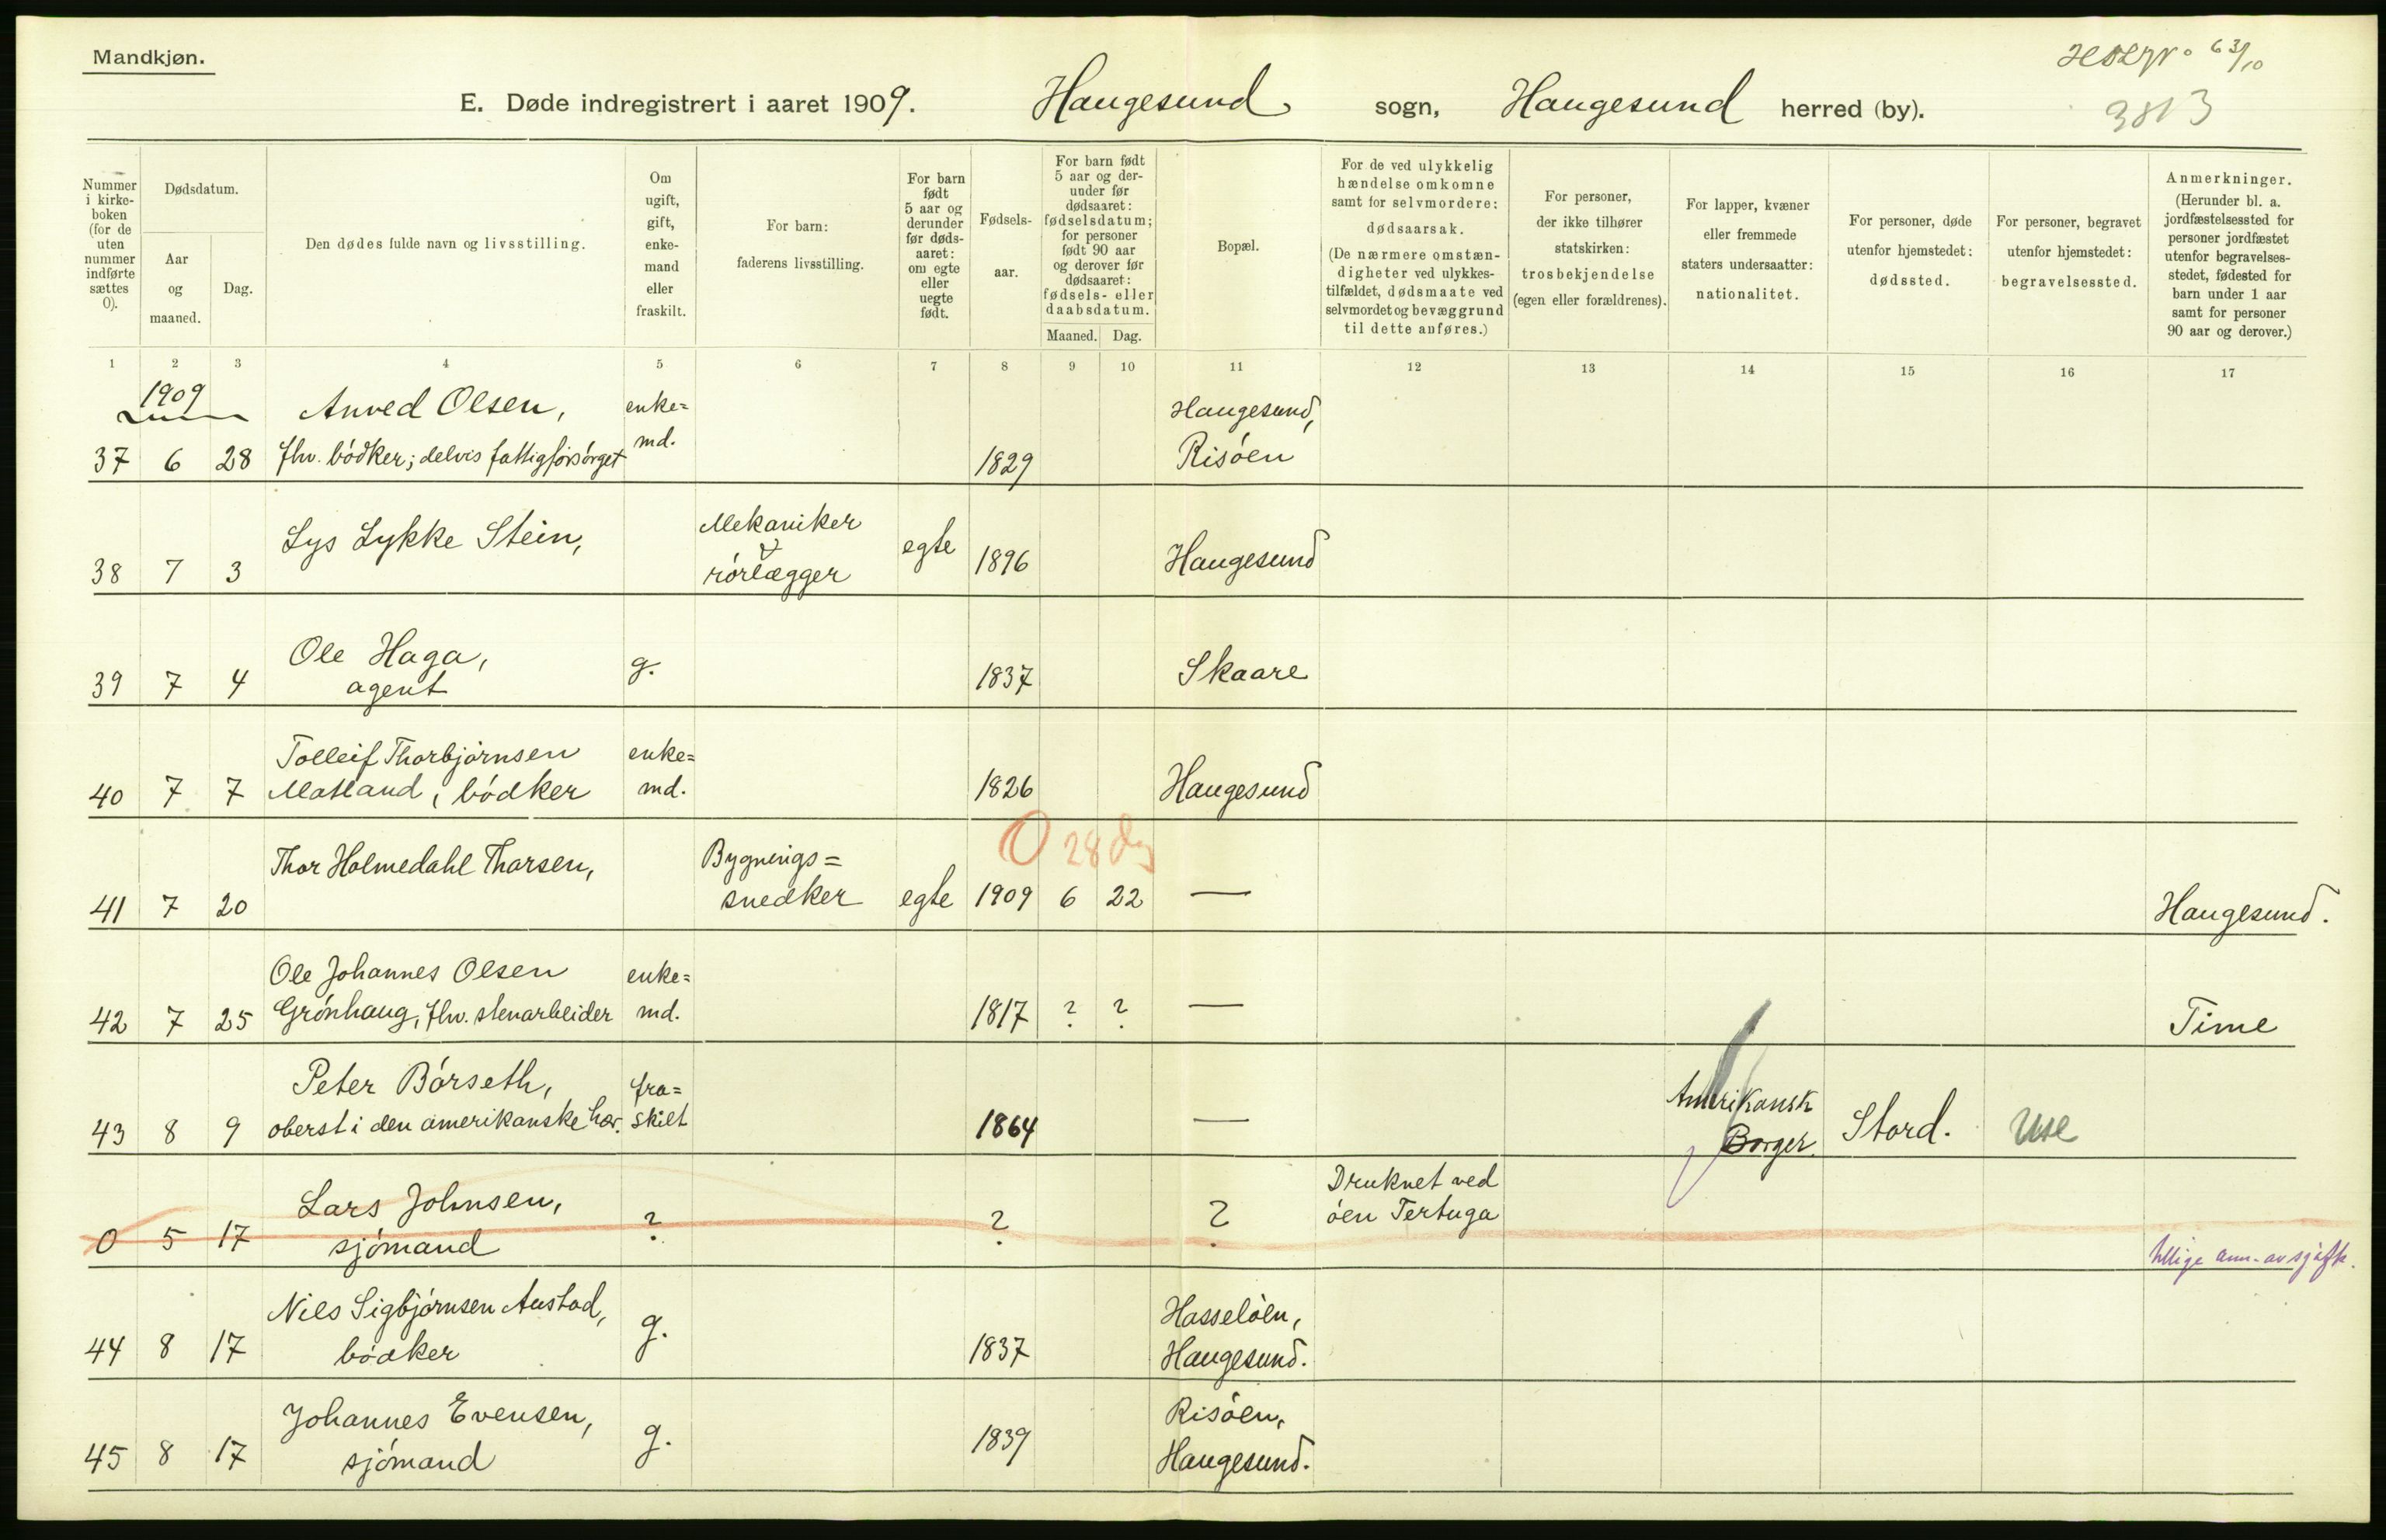 Mandkjøn.
63/10
3813
E. Døde indregistrert i aaret 1909. Haugesund sogn, Haugesund herred (by).
Nummer i kirke-boken (for de uten nummer indførte sættes 0).
Dødsdatum.
Aar og maaned.
Dag.
Den dødes fulde navn og livsstilling.
Om ugift, gift, enke-mand eller fraskilt.
For barn: faderens livsstilling.
For barn født 5 aar og derunder før døds-aaret: om egte eller uegte født.
Fødsels-aar.
For barn født 5 aar og der-under før dødsaaret: fødselsdatum; for personer født 90 aar og derover før dødsaaret: fødsels- eller daabsdatum.
Maaned. Dag.
Bopæl.
For de ved ulykkelig hændelse omkomne samt for selvmordere: dødsaarsak. (De nærmere omstæn-digheter ved ulykkes-tilfældet, dødsmaate ved selvmordet og bevæggrund til dette anføres.)
For personer, der ikke tilhører statskirken: trosbekjendelse (egen eller forældrenes).
For lapper, kvæner eller fremmede staters undersaatter: nationalitet.
For personer, døde utenfor hjemstedet: dødssted.
For personer, begravet utenfor hjemstedet: begravelsessted.
Anmerkninger. (Herunder bl. a. jordfæstelsessted for personer jordfæstet utenfor begravelses-stedet, fødested for barn under 1 aar samt for personer 90 aar og derover.)
1 2 3 4 5 6 7 8 9 10 11 12 13 14 15 16 17
1909 Anved Olsen, enke= Haugesund,
37 6 28 fhv. bódker; delvis fattigforsórget md. 1829 Risóen
Lys Lykke Stein, Mekaniker
38 7 3 & rórlægger egte 1896 Haugesund
Ole Haga, g.
39 7 4 agent 1837 Skaare
Tolleif Thorbjórnsen enke=
40 7 7 Matland, bódker md. 1826 Haugesund
0 28 dg
Thor Holmedahl Thorsen, Bygnings=
41 7 20 snedker egte 1909 6 22 — Haugesund.
Ole Johannes Olsen enke=
42 7 25 Grónhaug, fhv. stenarbeider md. 1817 ? ? — Time
Peter Bórseth, fra= Amerikansk
43 8 9 oberst i den amerikanske hær. skilt 1864 — Borger Stord. Use
Lars Johnsen, Druknet ved
0 5 17 sjómand ? ? ? óen Tertuga
Nils Sigbjórnsen Austad, Hasselóen,
44 8 17 bódker g. 1837 Haugesund.
Johannes Evensen, Risóen,
45 8 17 sjómand g. 1839 Haugesund.